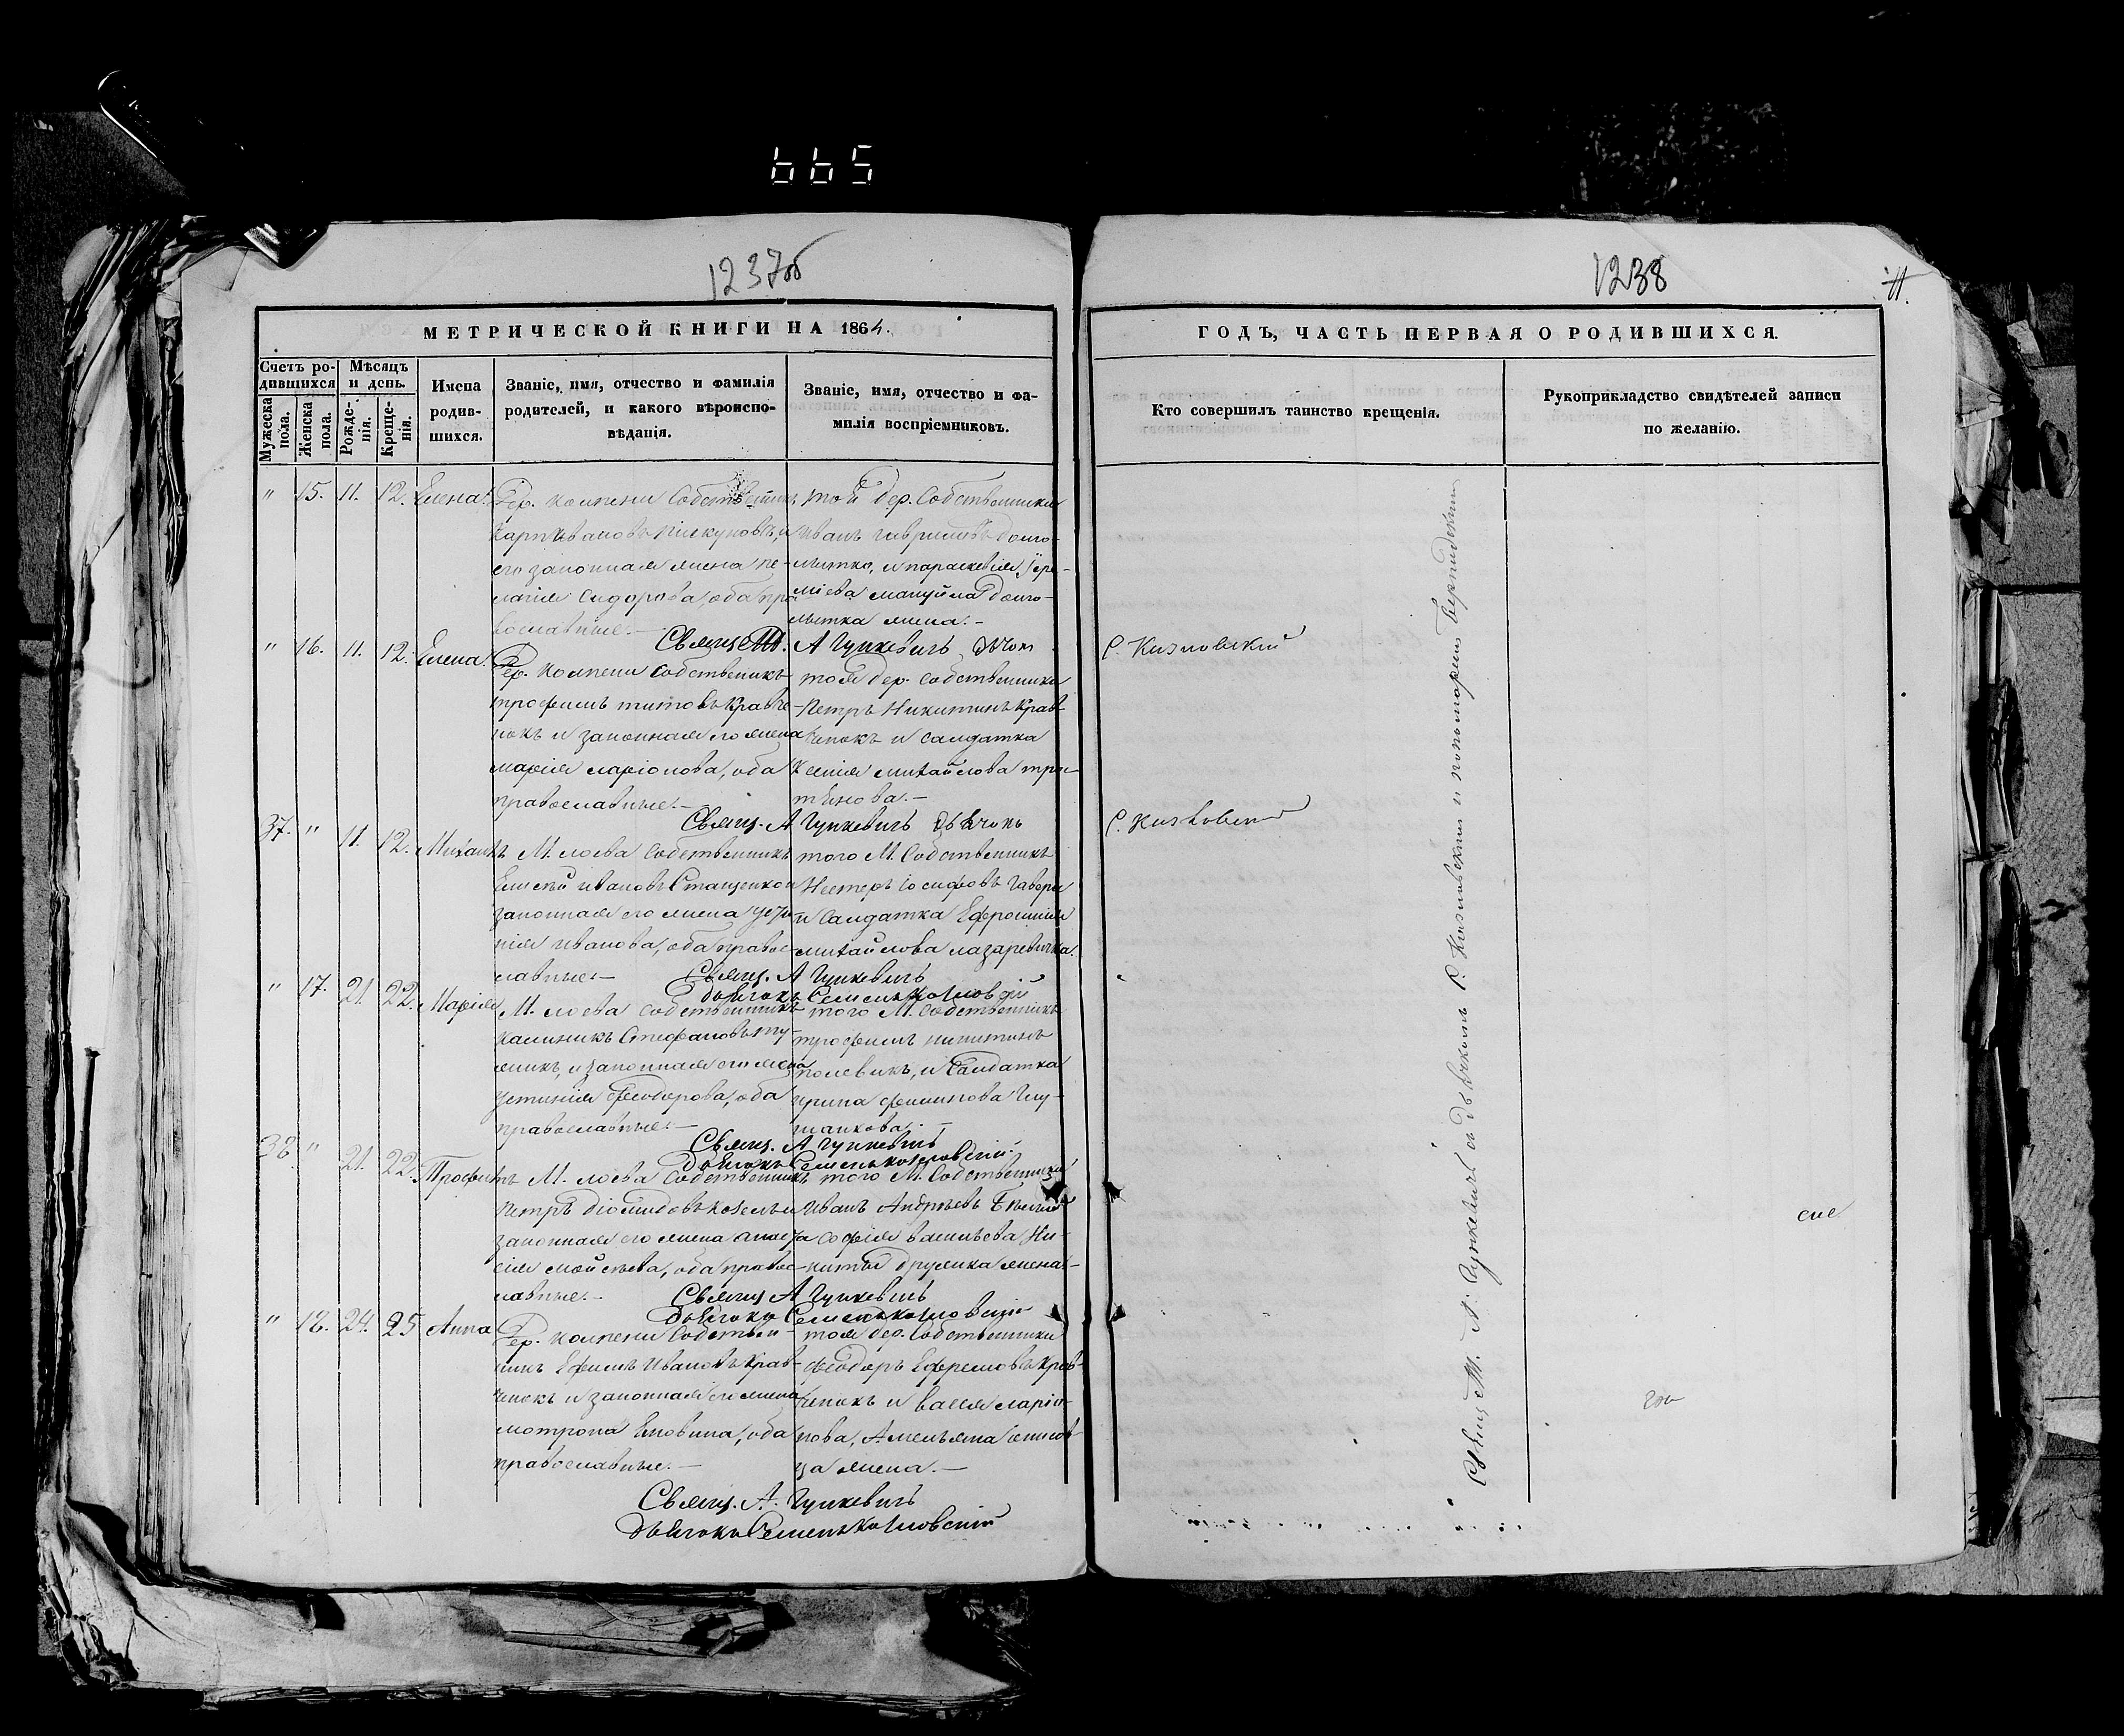 665
1237об
1238
11.
МЕТРИЧЕСКОЙ КНИГИ НА 1864.
ГОДЪ, ЧАСТЬ ПЕРВАЯ О РОДИВШИХСЯ.
Счетъ ро-
дившихся
Мужеска
пола.
Женска
пола.
Мѣсяцъ
и день.
Рожде-
нія.
Креще-
нія.
Имена
родив-
шихся.
Званіе, имя, отчество и фамилія
родителей, и какого вѣроиспо-
вѣданія.
Званіе, имя, отчество и фа-
милія воспріемниковъ.
Кто совершилъ таинство крещенія.
Рукоприкладство свидѣтелей записи
по желанію.
" 15. 11. 12. Елена.
Дер. Колпени Собственникъ
Карпъ Ивановъ и
его законная жена Пе-
лагія Сидорова, оба пра-
вославные.-
той дер. Собственники
Иванъ Гавриловъ Долго-
и Параскевія
Долго-
жена.-
Свящ. А Гуцкевичъ Дьячокъ
С. Козловскій
" 16. 11. 12. Елена.
Дер. Колпени Собственникъ
Трофимъ Титовъ Кравче-
нокъ и законная его жена
Марія Ларіонова, оба
православные.-
тоя дер. Собственники
Петръ Никитинъ Крав-
ченокъ и Салдатка
Ксенія Михайлова
Свящ. А Гуцкевичъ Дьячокъ
С. Козловскій
37. " 11. 12. Михаилъ
М. Лоева Собственникъ
Елисѣй Ивановъ Стащенко и
законная его жена Усти-
нія Иванова, оба правос-
лавные.-
того М. Собственникъ
Нестеръ Іосифовъ
и Салдатка Ефросинія
Михайлова Лазаревичка.
Свящ. А Гуцкевичъ
Дьячокъ Семенъ Козловскій
" 17. 21. 22. Марія
М. Лоева Собственникъ
Калиникъ Стефановъ
и законная его жена
Устинія Феодорова, оба
православные.-
того М. Собственникъ
Трофимъ Никитинъ
Полевикъ, и Салдатка
Ирина Филипова
Свящ. А Гуцкевичъ
Дьячокъ Семенъ Козловскій
38. " 21. 22. Трофимъ
М. Лоева Собственникъ
Петръ Діомидовъ Козелъ и
законная его жена Анаста-
сія Мойсѣева, оба правос-
лавные.-
того М. Собственники
Иванъ Андреевъ
Софія Васильева Ни-
киты жена.-
Свящ А Гуцкевичъ
Дьячокъ Семенъ Козловскій
" 18. 24. 25 Анна
Дер. Колпени Собствен-
никъ Ефимъ Ивановъ Крав-
ченокъ и законная его жена
Мотрона оба
православные.-
тоя дер. Собственники
Феодоръ Ефремовъ Крав-
ченокъ и Васса Ларіо-
нова,
жена.-
Свящ. А. Гуцкевичъ
Дьячокъ Семенъ Козловскій
Свящ. М. А. Гуцкевичъ съ дьячкомъ С. Козловскимъ и пономаремъ